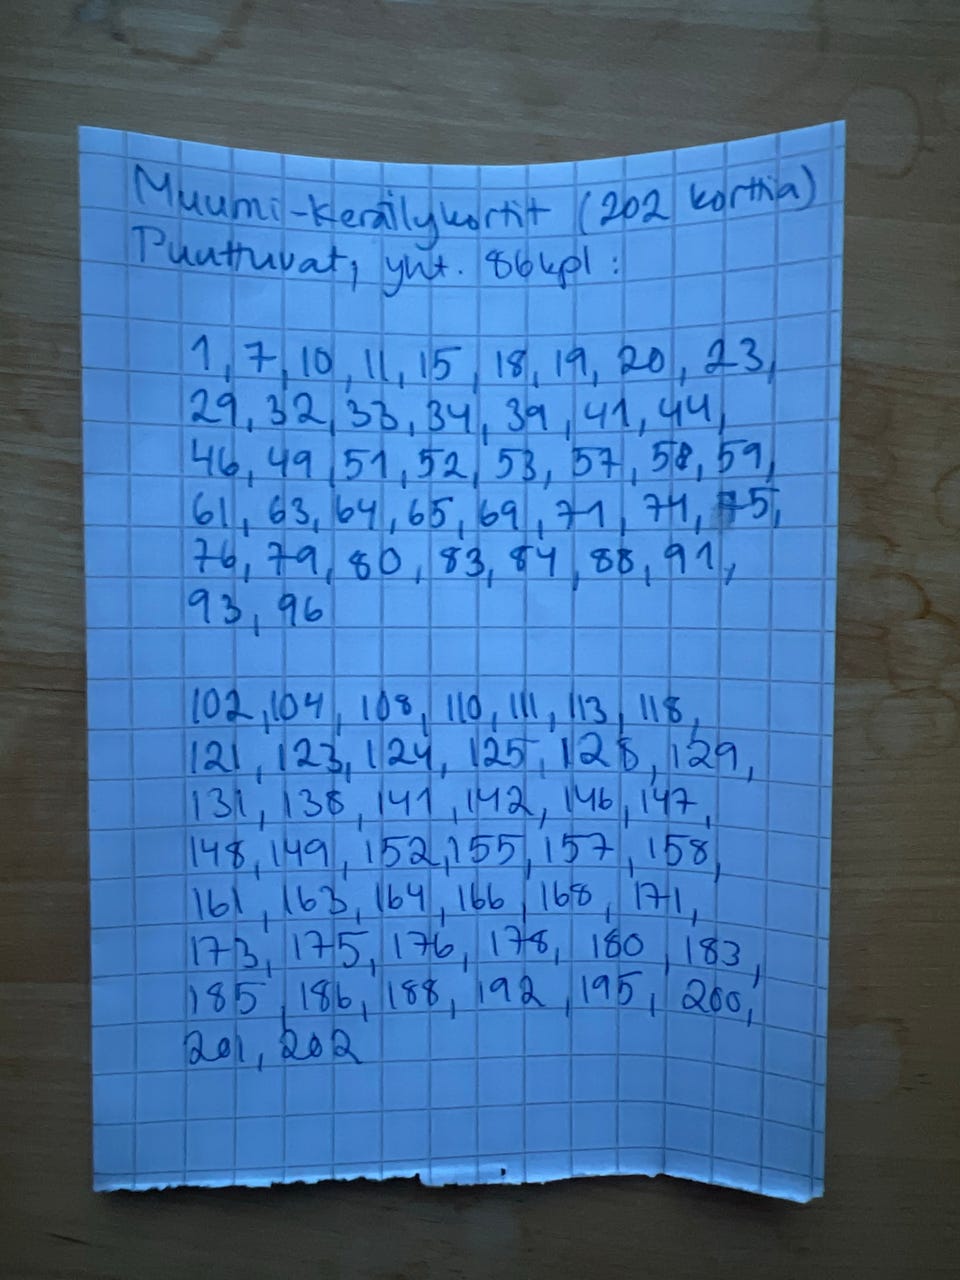 Muumi-Keräilykortit (202 korttia)
Puuttuvat, yht. 86kpl:
1, 7, 10, 11, 15, 18, 19, 20, 23,
29, 32, 33, 34, 39, 41, 44,
46, 49, 51, 52, 53, 57, 58, 59,
61, 63, 64, 65, 69, 71, 74, 75,
76, 79, 80, 83, 84, 88, 91,
93, 96
102, 104, 108, 110, 111, 113, 118,
121, 123, 124, 125, 128, 129,
131, 138, 141, 142, 146, 147,
148, 149, 152, 155, 157, 158,
161, 163, 164, 166, 168, 171,
173, 175, 176, 178, 180, 183,
185, 186, 188, 192, 195, 200,
201, 202